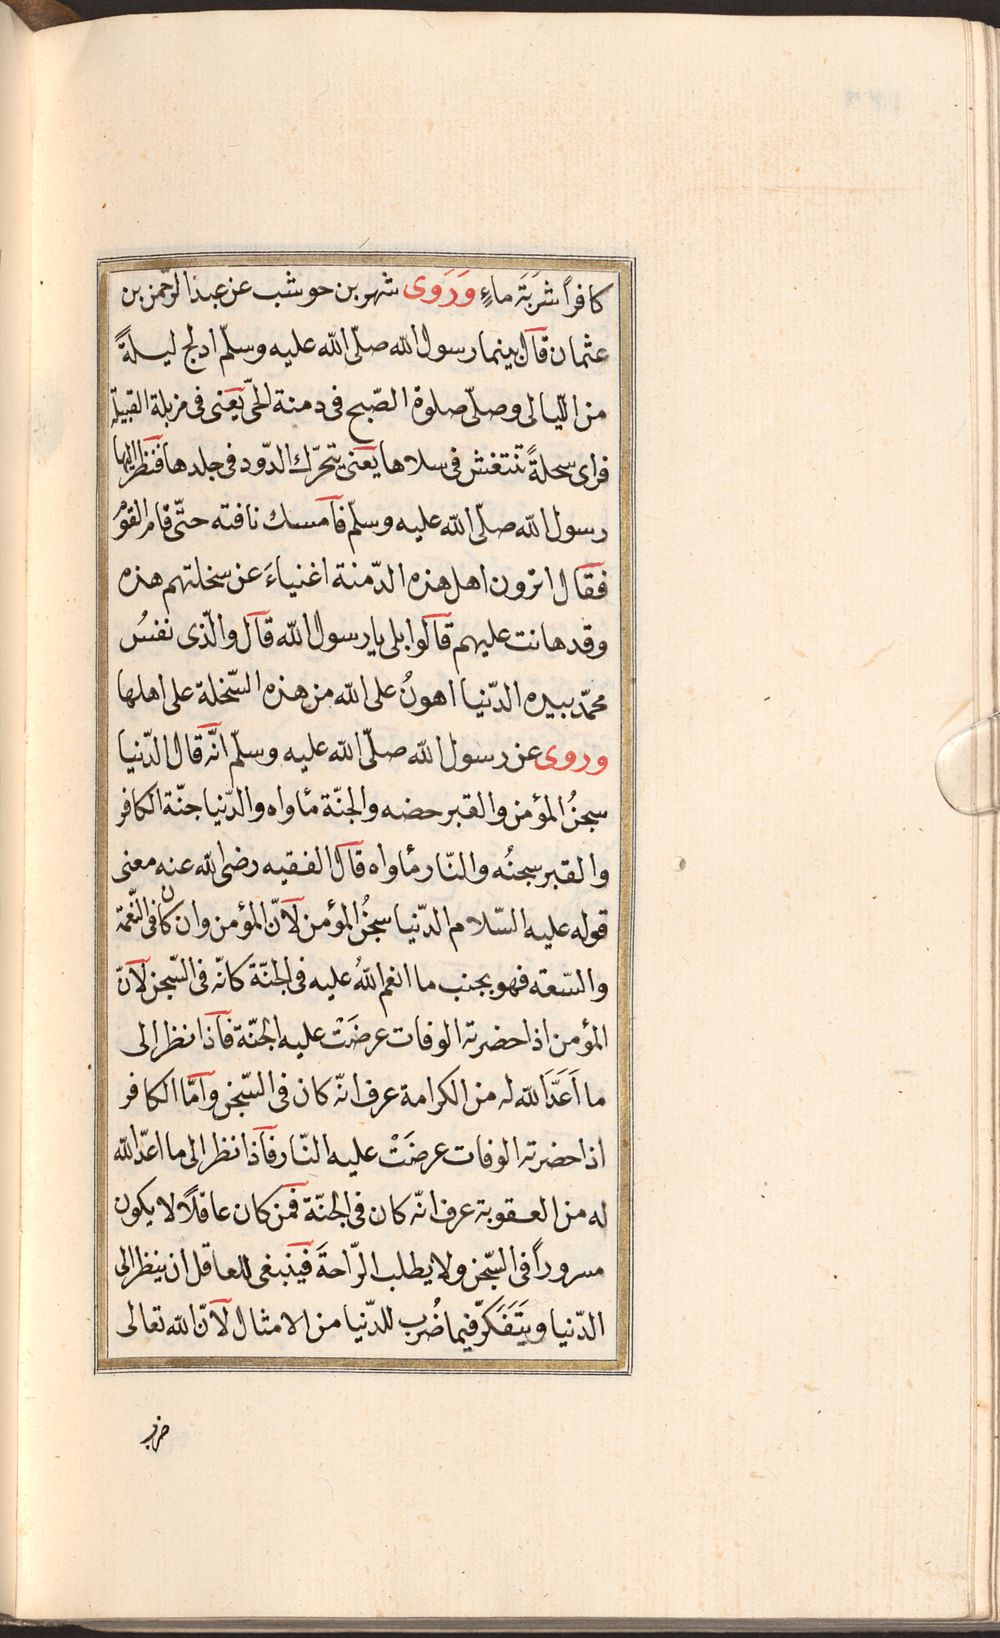 كافراً شَربَةَ ماءٍ وَرَوى شهر بن حوشب عن عبد الرّحمن بن
عثمان قال بينما رسول الله صلّى الله عليه وسلّم ادلج ليلةً
من اللّيالى وصلّى صلوة الصّبح فى دمنة الحىّ يعنى فى مزبلة القبيلة
فراى سحلةً تنتغش فى سلاها يعنى يتحرّك الدّود فى جلدها فنظر اليها
رسول الله صلّى الله عليه وسلّم فامسك ناقته حتّى قام القومُ
فقال اترون اهل هذه الدّمنة اغنياءَ عن سخلتهم هذه
وقد هانت عليهم قالوا بلى يا رسول الله قال والّذى نفسُ
محمّد بيده الدّنيا اهونُ على الله من هذه السّخلة على اهلها
وروى عن رسول الله صلّى الله عليه وسلّم انّه قال الدّنيا
سجنُ المؤمن والقبر حضنه والجنّة مأواه والدّنيا جنّة الكافر
والقبر سجنُه والنّار مأواه قال الفقيه رضى الله عنه معنى
قوله عليه السّلام الدّنيا سجنُ المؤمن لانّ المؤمن وان كان فى النّعمة
والسّعة فهو بجنب ما انعم اللهُ عليه فى الجنّة كانّه فى السّجن لانّ
المؤمن اذا حضرته الوفات عرضَتْ عليه الجنّة فاذا نظر الى
ما اَعَدَّ الله له من الكرامة عرف انّه كان فى السّجن وامّا الكافر
اذا حضرته الوفات عرضَتْ عليه النّار فاذا نظر الى ما اعدّ الله
له من العقوبة عرف انّه كان فى الجنّة فمن كان عاقلاً لا يكون
مسروراً فى السّجن ولا يطلب الرّاحةَ فينبغى للعاقل ان ينظر الى
الدّنيا ويَتَفَكّر فيما ضُرب للدّنيا من الامثال لانّ الله تعالى
ضرب